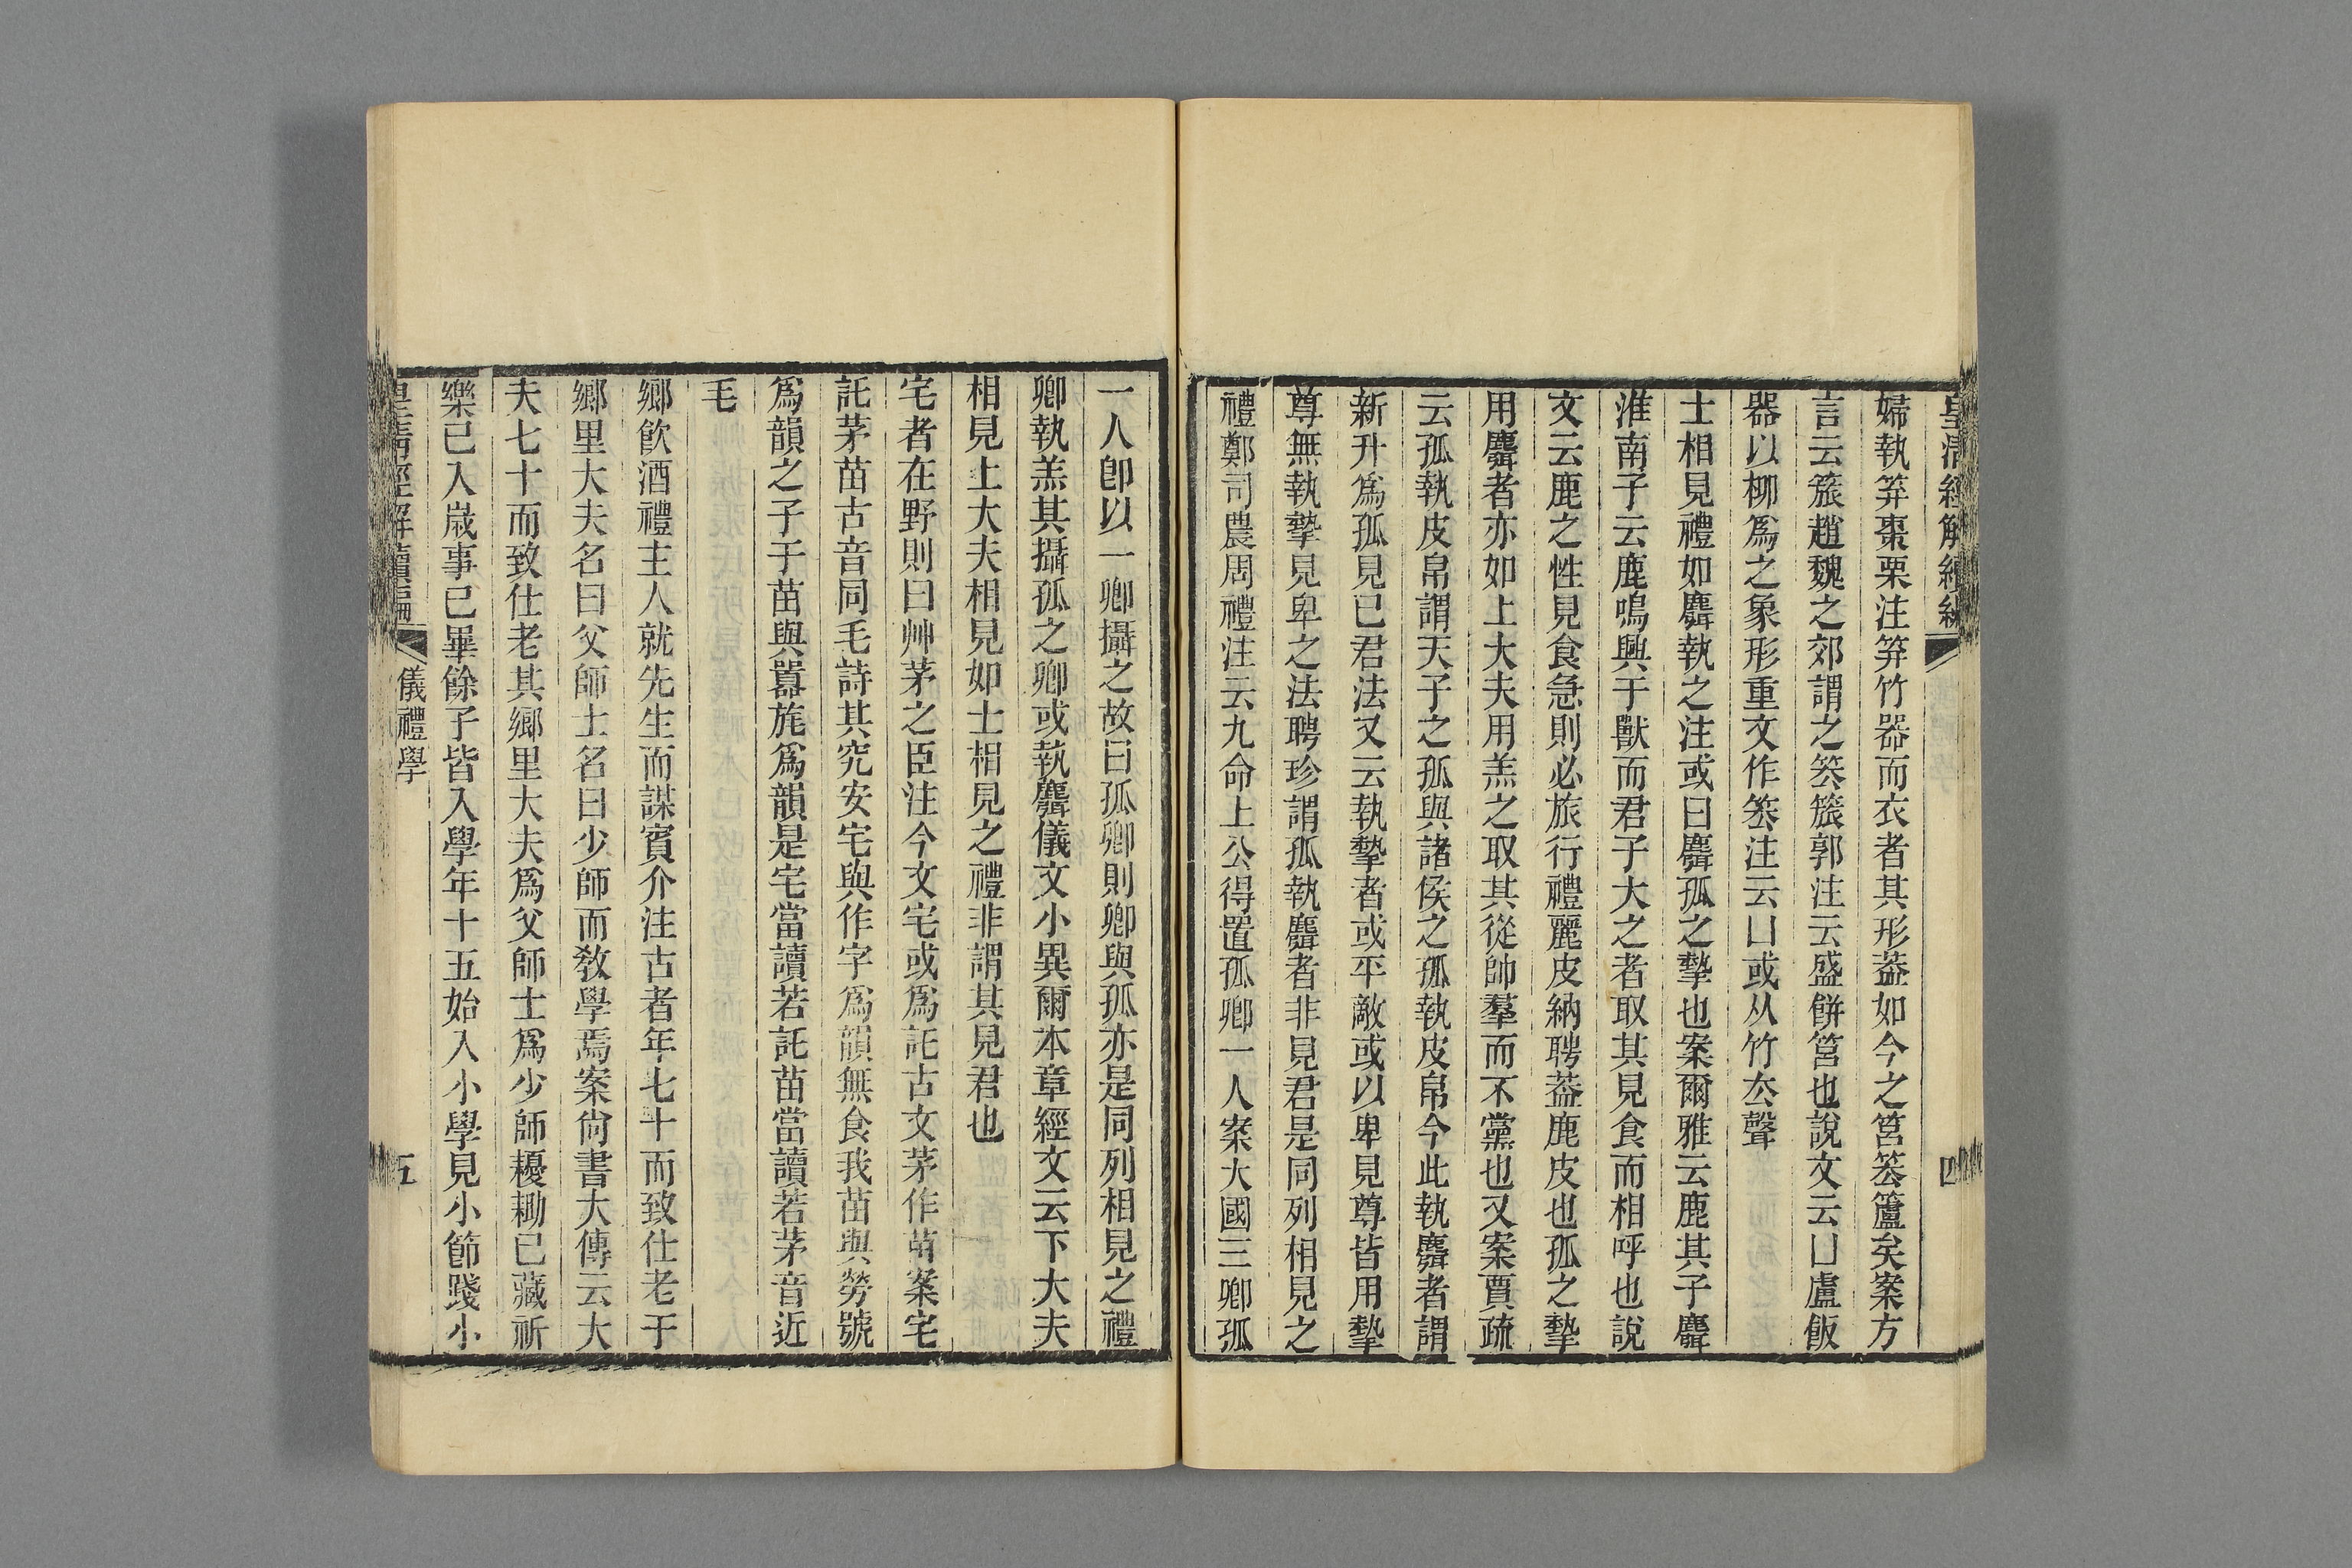 皇清經解續編
四
婦執筓棗栗注筓竹器而衣者其形葢如今之筥䇲籚矣案方
言云簇趙魏之郊謂之䇲簇郭注云盛餅筥也說文云凵盧飯
器以柳爲之象形重文作䇲注云凵或从竹厺聲
士相見禮如麛執之注或曰麛孤之摯也案爾雅云鹿其子麛
淮南子云鹿鳴興于獸而君子大之者取其見食而相呼也說
文云鹿之性見食急則必旅行禮麗皮納聘葢鹿皮也孤之摯
用麛者亦如上大夫用羔之取其從帥羣而不黨也又案賈疏
云孤執皮帛謂天子之孤與諸侯之孤執皮帛今此執麛者謂
新升爲孤見已君法又云執摯者或平敵或以卑見尊皆用摯
尊無執摯見卑之法聘珍謂孤執麛者非見君是同列相見之
禮鄭司農周禮注云九命上公得置孤卿一人案大國三卿孤
一人卽以一卿攝之故曰孤卿則卿與孤亦是同列相見之禮
卿執羔其攝孤之卿或執麛儀文小異爾本章經文云下大夫
相見上大夫相見如士相見之禮非謂其見君也
宅者在野則曰艸茅之臣注今文宅或爲託古文茅作苗案宅
託茅苗古音同毛詩其究安宅與作字爲韻無食我苗與勞號
爲韻之子于苗與囂旄爲韻是宅當讀若託苗當讀若茅音近
毛
鄉飮酒禮主人就先生而謀賓介注古者年七十而致仕老于
鄉里大夫名曰父師士名曰少師而敎學焉案尙書大傳云大
夫七十而致仕老其鄉里大夫爲父師士爲少師耰耡已藏祈
樂已入歲事已畢餘子皆入學年十五始入小學見小節踐小
皇淸經解續編
儀禮學
五